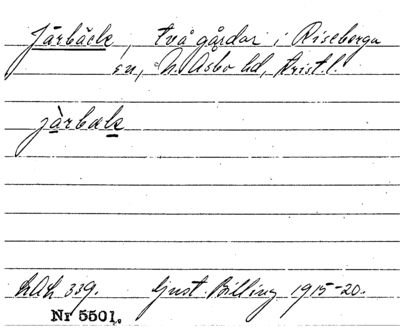 Järbäck, två gårdar i Riseberga
sn, N. Åsbo hd, Krist.l.
järbæk
LAL 339. Gust. Billing 1915-20.
Nr 5501.